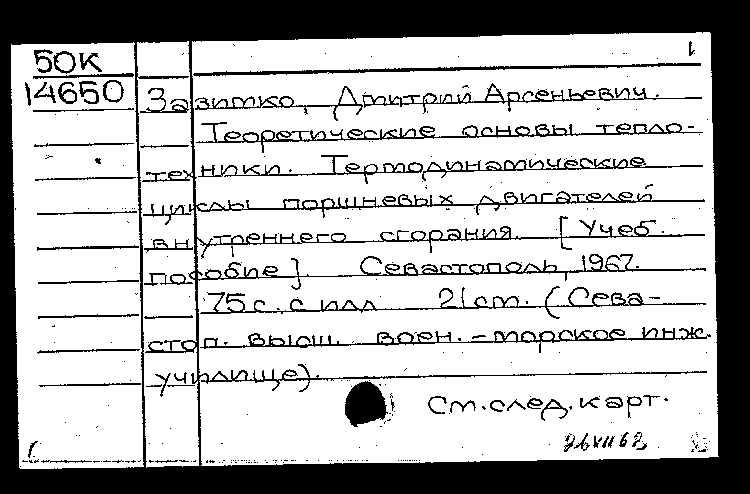 1
50К
14650
Зазитко, Дмитрий Арсеньевич.
Теоретические основы тепло-
техники. Термодинамические
циклы поршневых двигателей
внутреннего сгорания. [Учеб.
пособие]. Севастополь, 1967.
75 с. с илл 21 cm. (Сева-
стоп. высш. воен. - морское инж.
училище).
См. след. карт.